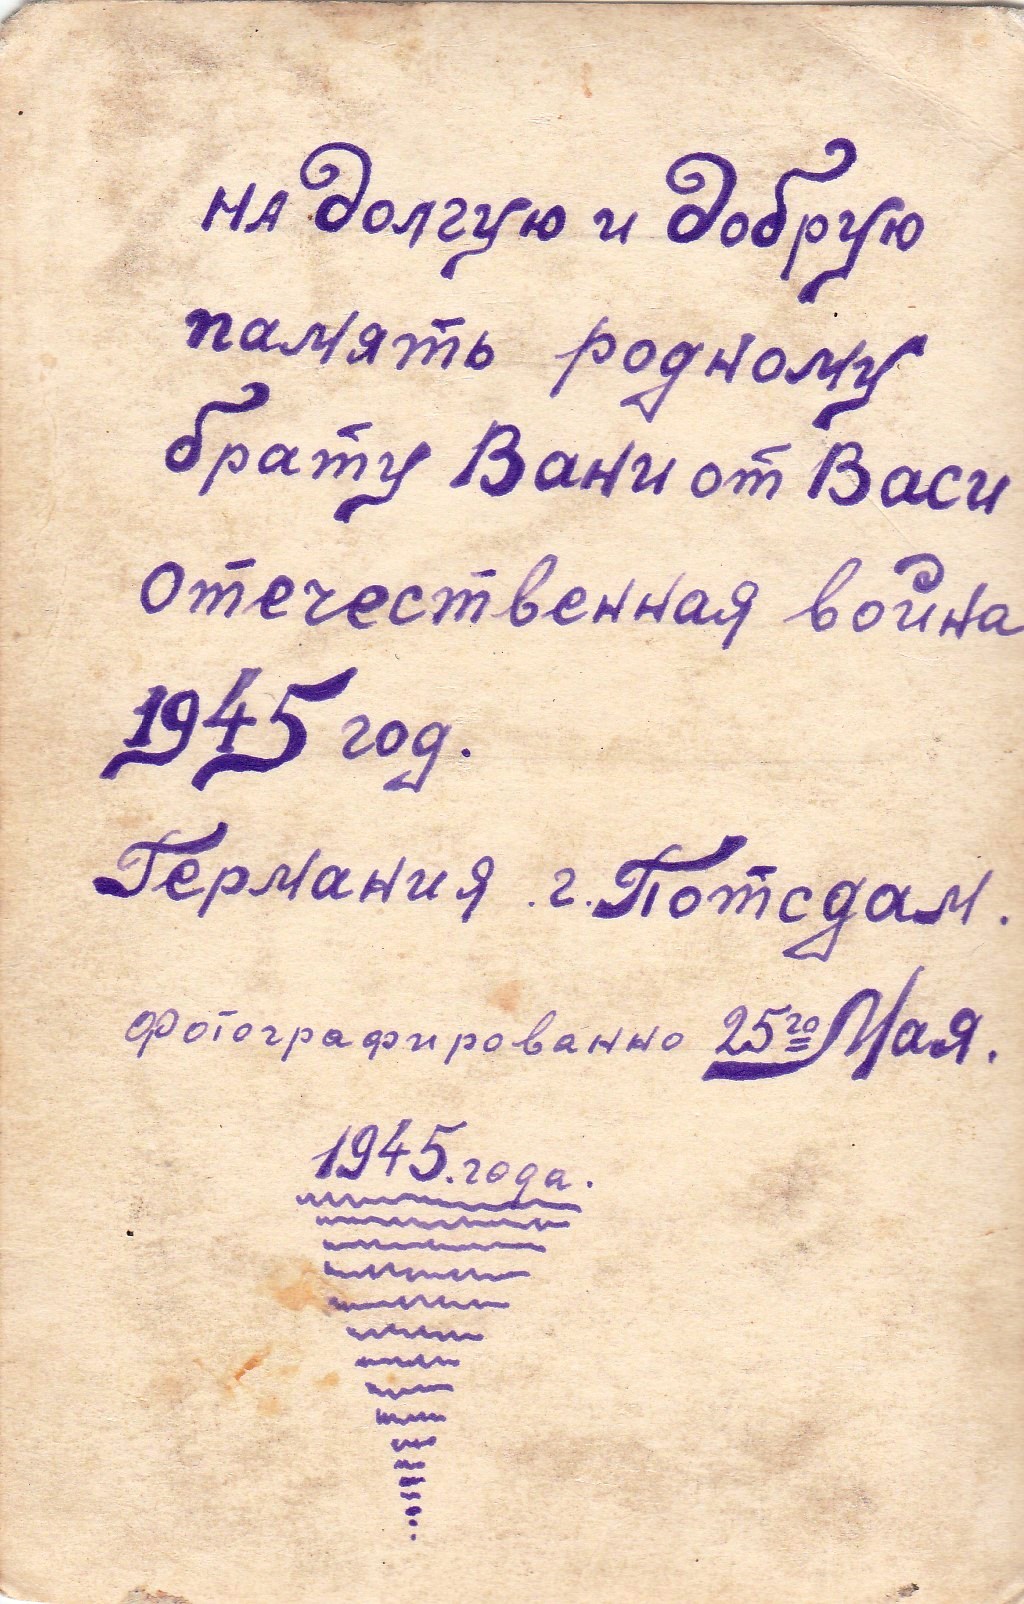 на долгую и добрую
память родному
брату Вани от Васи
Отечественная война
1945 год.
Германия г. Потсдам.
Фотографированно 25го Мая.
1945. года.